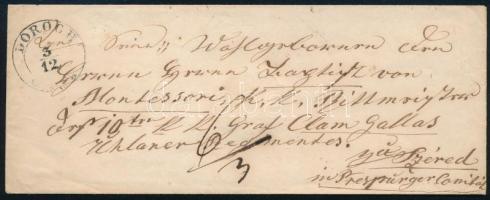 DOROGH
3/12
Seiner Wohlgebornen dem
Herrn Herrn von
Montessori, k. k. Rittmeister
des 10ten k. k. Graf Clam Gallas
Uhlanen Regimentes.
zu Széred
in Presburger Comitat